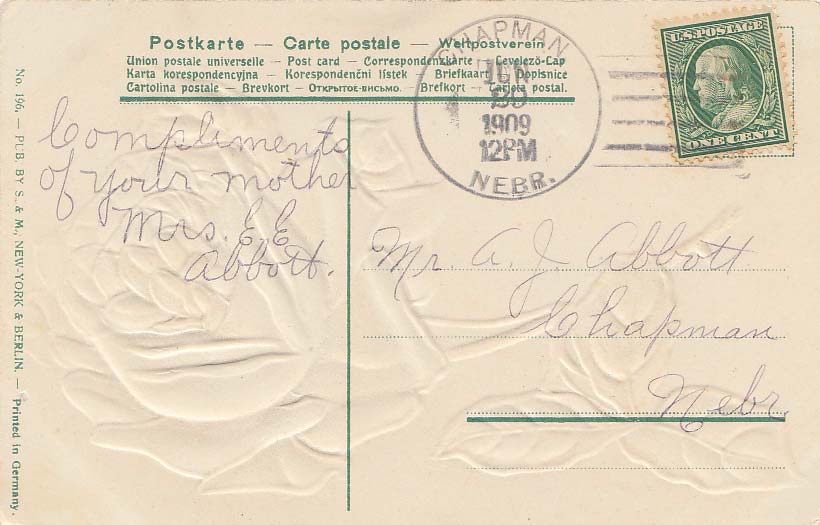 Postkarte — Carte postale — Weltpostverein
Union postale universelle — Post card — Correspondenzkarte — Levelező-Lap
Karta korespondencyjna — Korespondenční lístek — Briefkaart — Dopisnice
Cartolina postale — Brevkort — Открытое письмо. — Brefkort — Tarjeta postal.
CHAPMAN
JUN
1909
12PM
NEBR.
U.S. POSTAGE
ONE CENT
Compliments
of your mother
Mrs. E. E.
Abbott.
Mr. A. J. Abbott
Chapman
Nebr.
No. 196. — PUB. BY S. & M., NEW-YORK & BERLIN. — Printed in Germany.